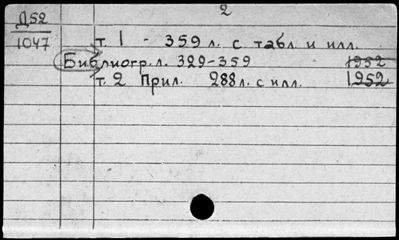 2
Д52
1047
т. 1 - 359 л. с табл и илл.
Библиогр. л. 329-359 1952
т. 2 Прил. 288 л. с илл. 1952